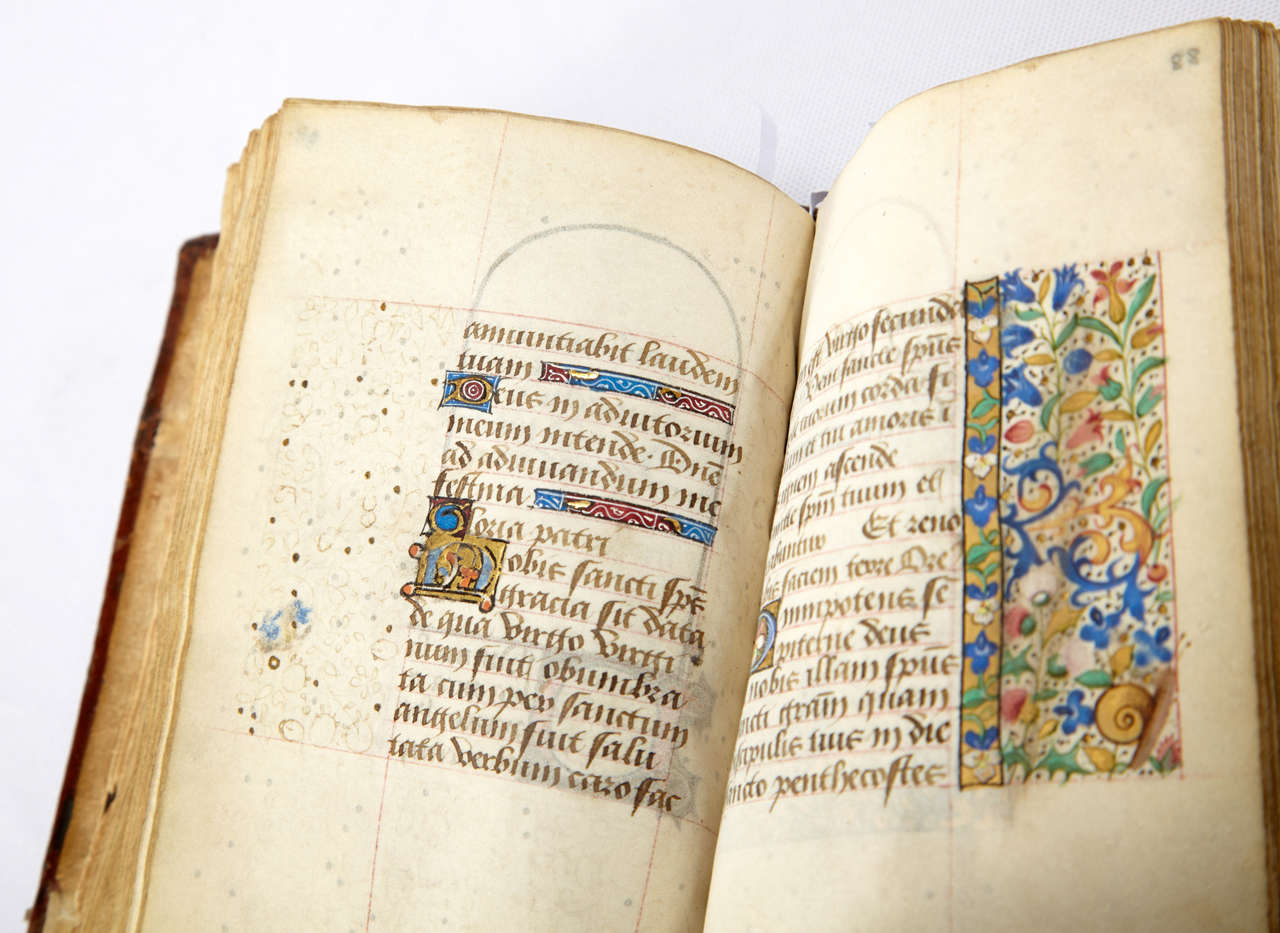 88
annuntiabit laudem
tuam
Deus in adiutorium
meum intende. Dne
ad adiuuandum me
festina
Gloria patri
Nobis sancti sps
gracia sit data
de qua virgo virgi
num fuit obumbra
ta cum per sanctum
angelum fuit salu
tata verbum caro fac
virgo fecunda
Veni sancte spus
corda fi
et tui amoris i
spm tuum et
Et reno
faciem terre Ore
mnipotens se
piterne deus
nobis illam spus
ncti gram quam
scipulis tuis in die
ancto penthecostes